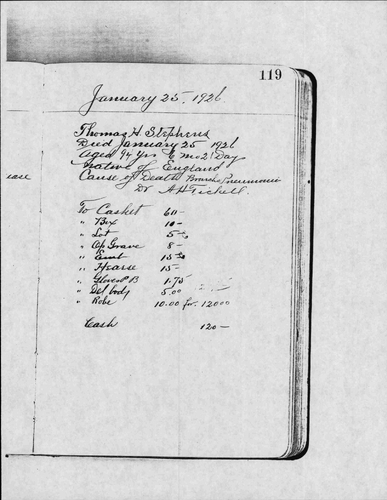 119
January 25, 1926.
Thomas H Stephens
Died January 25 1926
Aged 94 yrs 6 mo 2 Day
native of England
Cause of Death Broncho Pneumonia
Dr A H Tickell
ease
To Casket 60-
" Box 10-
" Lot 5
" Op Grave 8-
" Emb 15
" Hearse 15-
" Gloves 1.75
" Del body 5.00
" Robe 10.00 for 120 00
Cash 120-